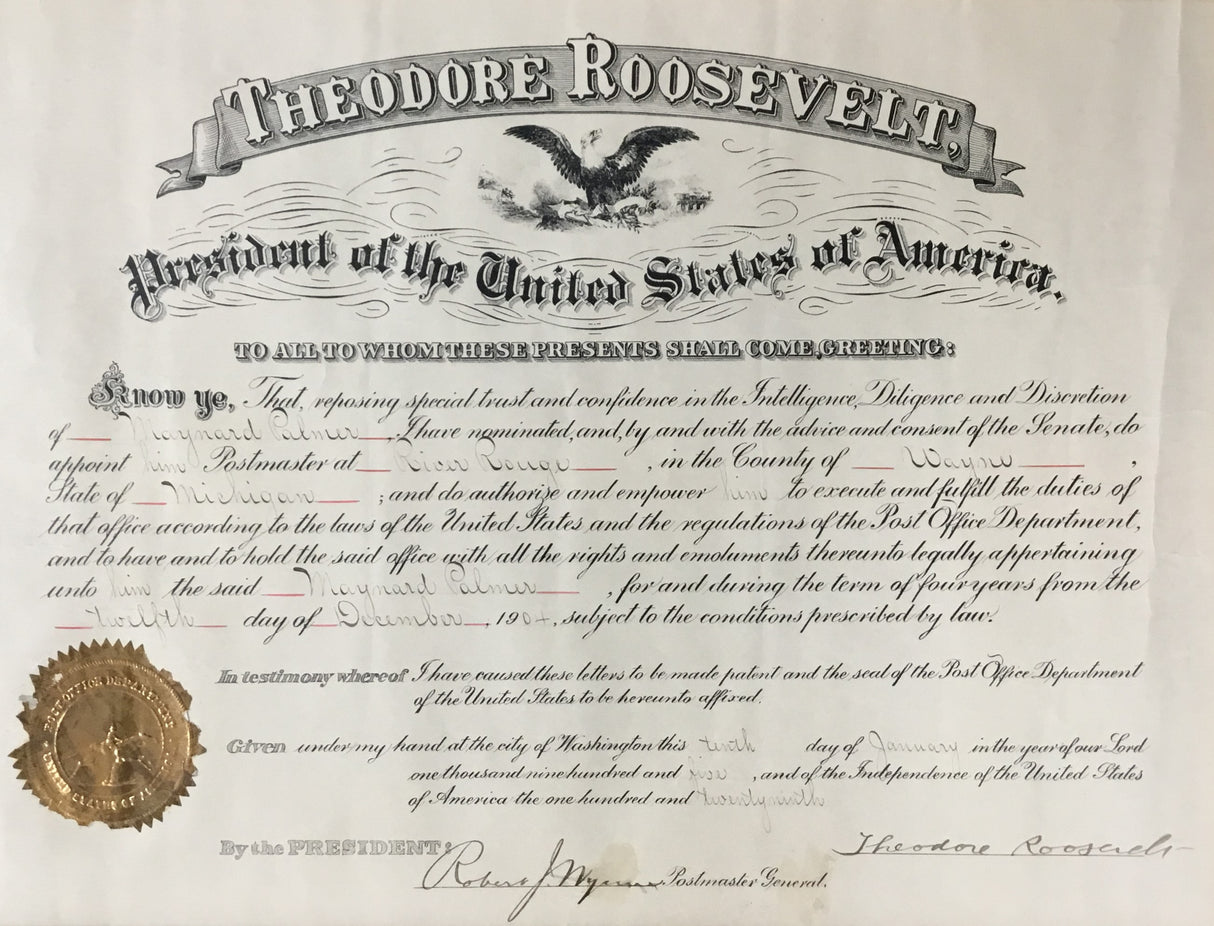 THEODORE ROOSEVELT,
President of the United States of America.
TO ALL TO WHOM THESE PRESENTS SHALL COME, GREETING:
Know ye, That, reposing special trust and confidence in the Intelligence, Diligence and Discretion
of Maynard Palmer, I have nominated, and, by and with the advice and consent of the Senate, do
appoint him Postmaster at River Rouge, in the County of Wayne,
State of Michigan; and do authorise and empower him to execute and fulfill the duties of
that office according to the laws of the United States and the regulations of the Post Office Department,
and to have and to hold the said office with all the rights and emoluments thereunto legally appertaining
unto him the said Maynard Palmer, for and during the term of four years from the
twelfth day of December, 1904, subject to the conditions prescribed by law.
In testimony whereof I have caused these letters to be made patent and the seal of the Post Office Department
of the United States to be hereunto affixed.
POST OFFICE DEPARTMENT
UNITED STATES OF
Given under my hand at the city of Washington this tenth day of January in the year of our Lord
one thousand nine hundred and five, and of the Independence of the United States
of America the one hundred and twenty ninth
By the PRESIDENT:
Theodore Roosevelt
Robert J. Wynne Postmaster General.